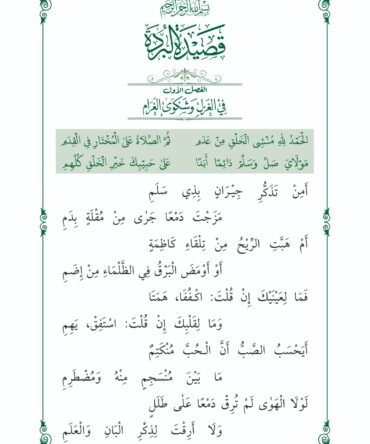 بسم الله الرحمن الرحيم
قَصِيْدَةُ الْبُرْدَةِ
الفصل الأول
فِي الْغَزَلِ وَشَكْوَى الْغَرَامِ
اَلْحَمْدُ لِلّٰهِ مُنْشِي الْخَلْقِ مِنْ عَدَمِ ثُمَّ الصَّلَاةُ عَلَى الْمُخْتَارِ فِي الْقِدَمِ
مَوْلَايَ صَلِّ وَسَلِّمْ دَائِمًا أَبَدًا عَلَى حَبِيْبِكَ خَيْرِ الْخَلْقِ كُلِّهِمِ
أَمِنْ تَذَكُّرِ جِيْرَانٍ بِذِي سَلَمِ
مَزَجْتَ دَمْعًا جَرَى مِنْ مُقْلَةٍ بِدَمِ
أَمْ هَبَّتِ الرِّيْحُ مِنْ تِلْقَاءِ كَاظِمَةٍ
أَوْ أَوْمَضَ الْبَرْقُ فِي الظَّلْمَاءِ مِنْ إِضَمِ
فَمَا لِعَيْنَيْكَ إِنْ قُلْتَ: اكْفُفَا، هَمَتَا
وَمَا لِقَلْبِكَ إِنْ قُلْتَ: اسْتَفِقْ، يَهِمِ
أَيَحْسَبُ الصَّبُّ أَنَّ الْحُبَّ مُنْكَتِمٌ
مَا بَيْنَ مُنْسَجِمٍ مِنْهُ وَمُضْطَرِمِ
لَوْلَا الْهَوَى لَمْ تُرِقْ دَمْعًا عَلَى طَلَلٍ
وَلَا أَرِقْتَ لِذِكْرِ الْبَانِ وَالْعَلَمِ